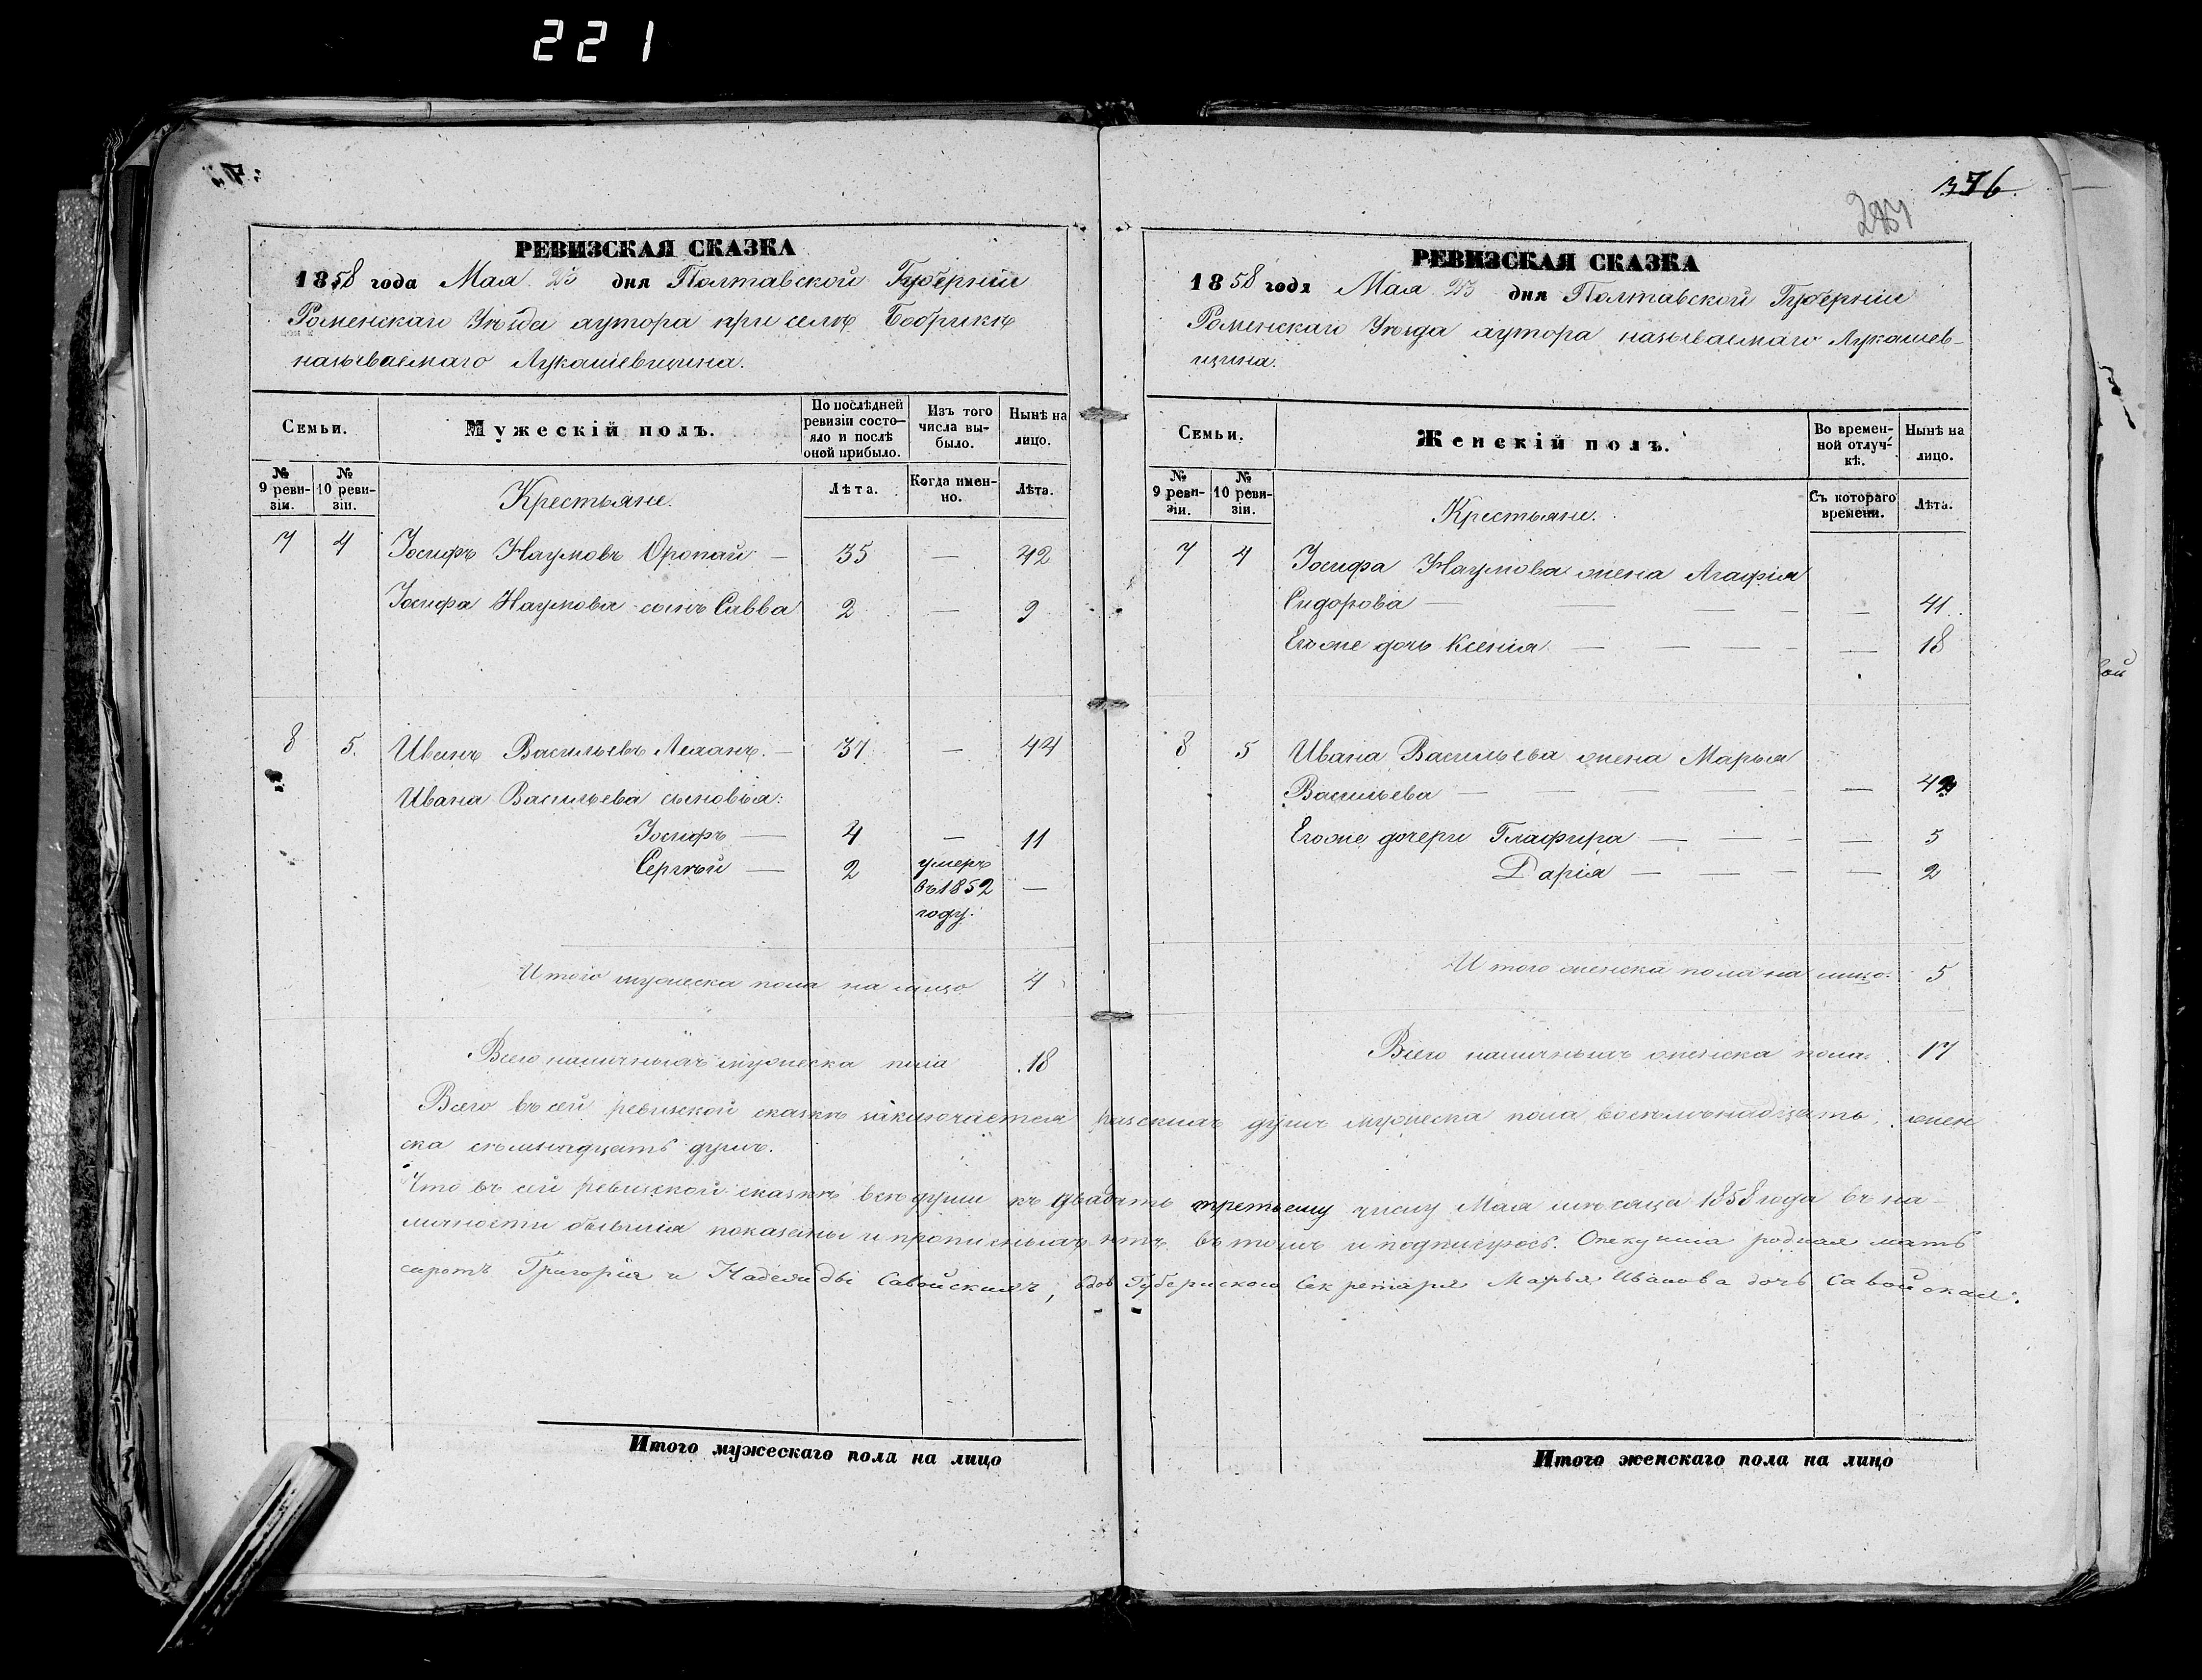 221
376.
РЕВИЗСКАЯ СКАЗКА
1858 года Мая 23 дня Полтавской Губерніи
Роменскаго Уѣзда хутора при селѣ Бобрикѣ
называемаго Лукашевщина.
Семьи.
Мужескій полъ.
По послѣдней ревизіи состо-
яло и послѣ
оной прибыло.
Изъ того
числа вы-
было.
Нынѣ на
лицо.
№
9 реви-
зіи.
№
10 реви-
зіи.
Крестьяне.
Лѣта.
Когда имен-
но.
Лѣта.
7 4 Іосифъ Наумовъ Оропай — 35 — 42
Іосифа Наумова сынъ Савва 2 — 9
8 5. Иванъ Васильевъ — 37 — 44
Ивана Васильева сыновья:
Іосифъ — 4 — 11
Сергѣй — 2 умеръ
въ 1852 —
году.
Итого мужеска пола на лицо 4
Всего наличныхъ мужеска пола 18
РЕВИЗСКАЯ СКАЗКА
1858 года Мая 23 дня Полтавской Губерніи
Роменскаго Уѣзда хутора называемаго Лукашев-
щина.
Семьи.
Женскій полъ.
Во времен-
ной отлуч-
кѣ.
Нынѣ на
лицо.
№
9 реви-
зіи.
№
10 реви-
зіи.
Крестьяне.
Съ котораго
времени.
Лѣта.
7 4 Іосифа Наумова жена Агафія
Сидорова — — — — — 41
Его же дочь Ксенія — — — — — 18
8 5 Ивана Васильева жена Марья
Васильева — — — — — —
Его же дочери Глафира — — — — 5
Дарія — — — — 2
Итого женска пола на лицо. 5
Всего наличныхъ женска пола. 17
Всего въ сей ревизской сказкѣ заключается ревизскихъ душъ мужеска пола восѣмънадцать, жен
ска семнадцать душъ.
Что въ сей ревизской сказкѣ всѣ души къ двадцать третьему числу Мая мѣсяца 1858 года въ на-
личности бывшія показаны и прописныхъ нѣтъ въ томъ и подпишуюсь. Опекунша родная мать
сиротъ Григорія и Надежды Савойскихъ, вдова Губернского Секретаря Марья Иванова дочь Савойская.
Итого мужескаго пола на лицо
Итого женскаго пола на лицо